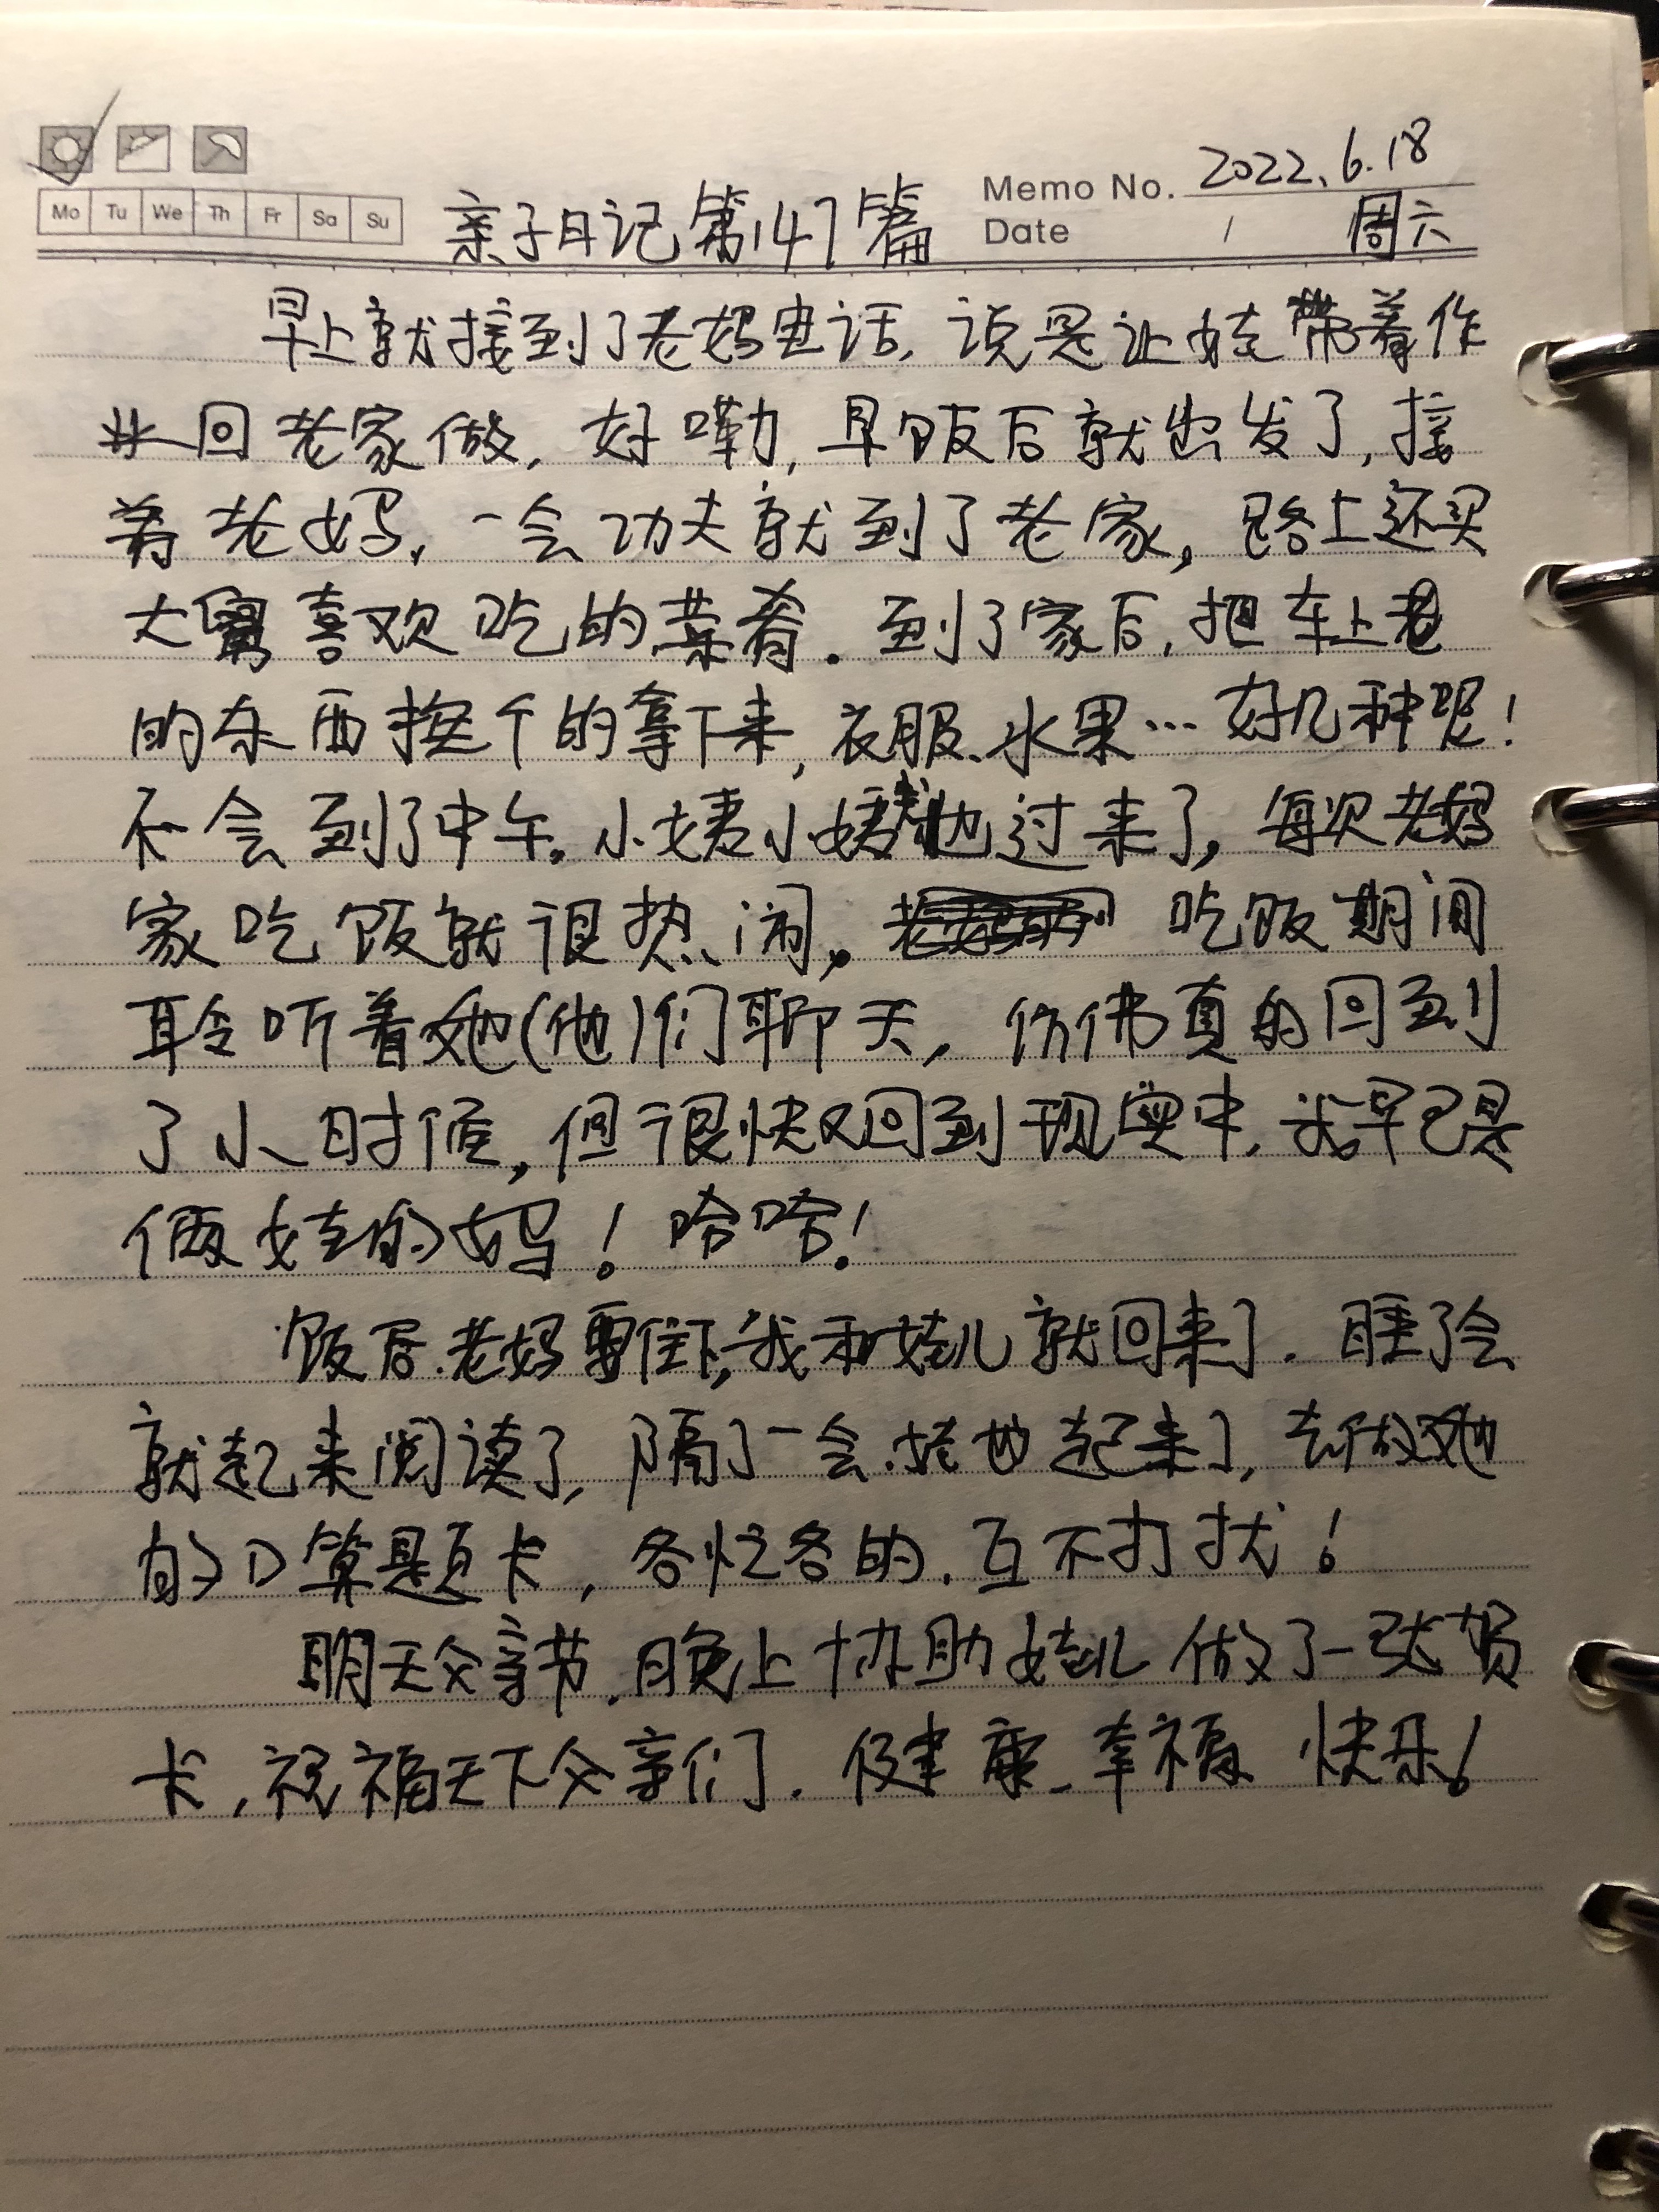 Memo No. 2022.6.18
Mo Tu We Th Fr Sa Su
亲子日记第147篇
Date / 周六
早上就接到了老妈电话,说是让娃带着作
业回老家做,好嘞,早饭后就出发了,接
着老妈,一会功夫就到了老家,路上还买
大舅喜欢吃的菜肴。到了家后,把车上老
的东西挨个的拿下来,衣服、水果…好几种呢!
不会到了中午。小姨小姨也过来了,每次老妈
家吃饭就很热闹。吃饭期间
聆听着她(他)们聊天,仿佛真的回到
了小时候,但很快又回到现实中,我早已是
俩娃的妈!哈哈!
饭后.老妈要住下,我和娃儿就回来了.睡了会
就起来阅读了,隔了一会.娃也起来了,去做她
的口算题卡,各忙各的.互不打扰!
明天父亲节,晚上协助娃儿做了一张贺
卡,祝福天下父亲们.健康、幸福 快乐!